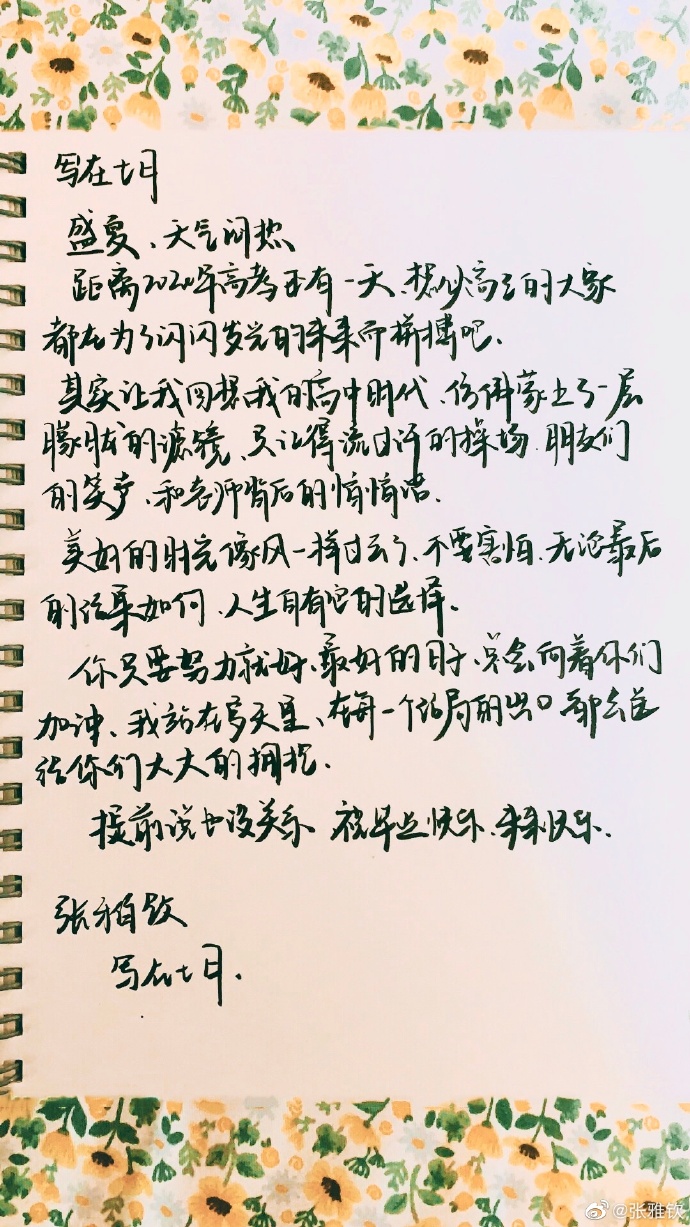 写在七月
盛夏、天气闷热
距离2020年高考还有一天、想必高三的大家
都在为了闪闪发光的未来而拼搏吧.
其实让我回想我的高中时代、仿佛蒙上了一层
朦胧的滤镜、只记得流过汗的操场、朋友们
的笑声、和老师背后的悄悄话.
美好的时光像风一样过去了、不要害怕、无论最后
的结果如何、人生自有它的选择.
你只要努力就好、最好的日子、总会向着你们
加冲、我站在夏天里、在每一个结局的出口 都会
给你们大大的拥抱.
提前说也没关系 祝毕业快乐、未来快乐.
张雅钦
写在七月.
@张雅钦